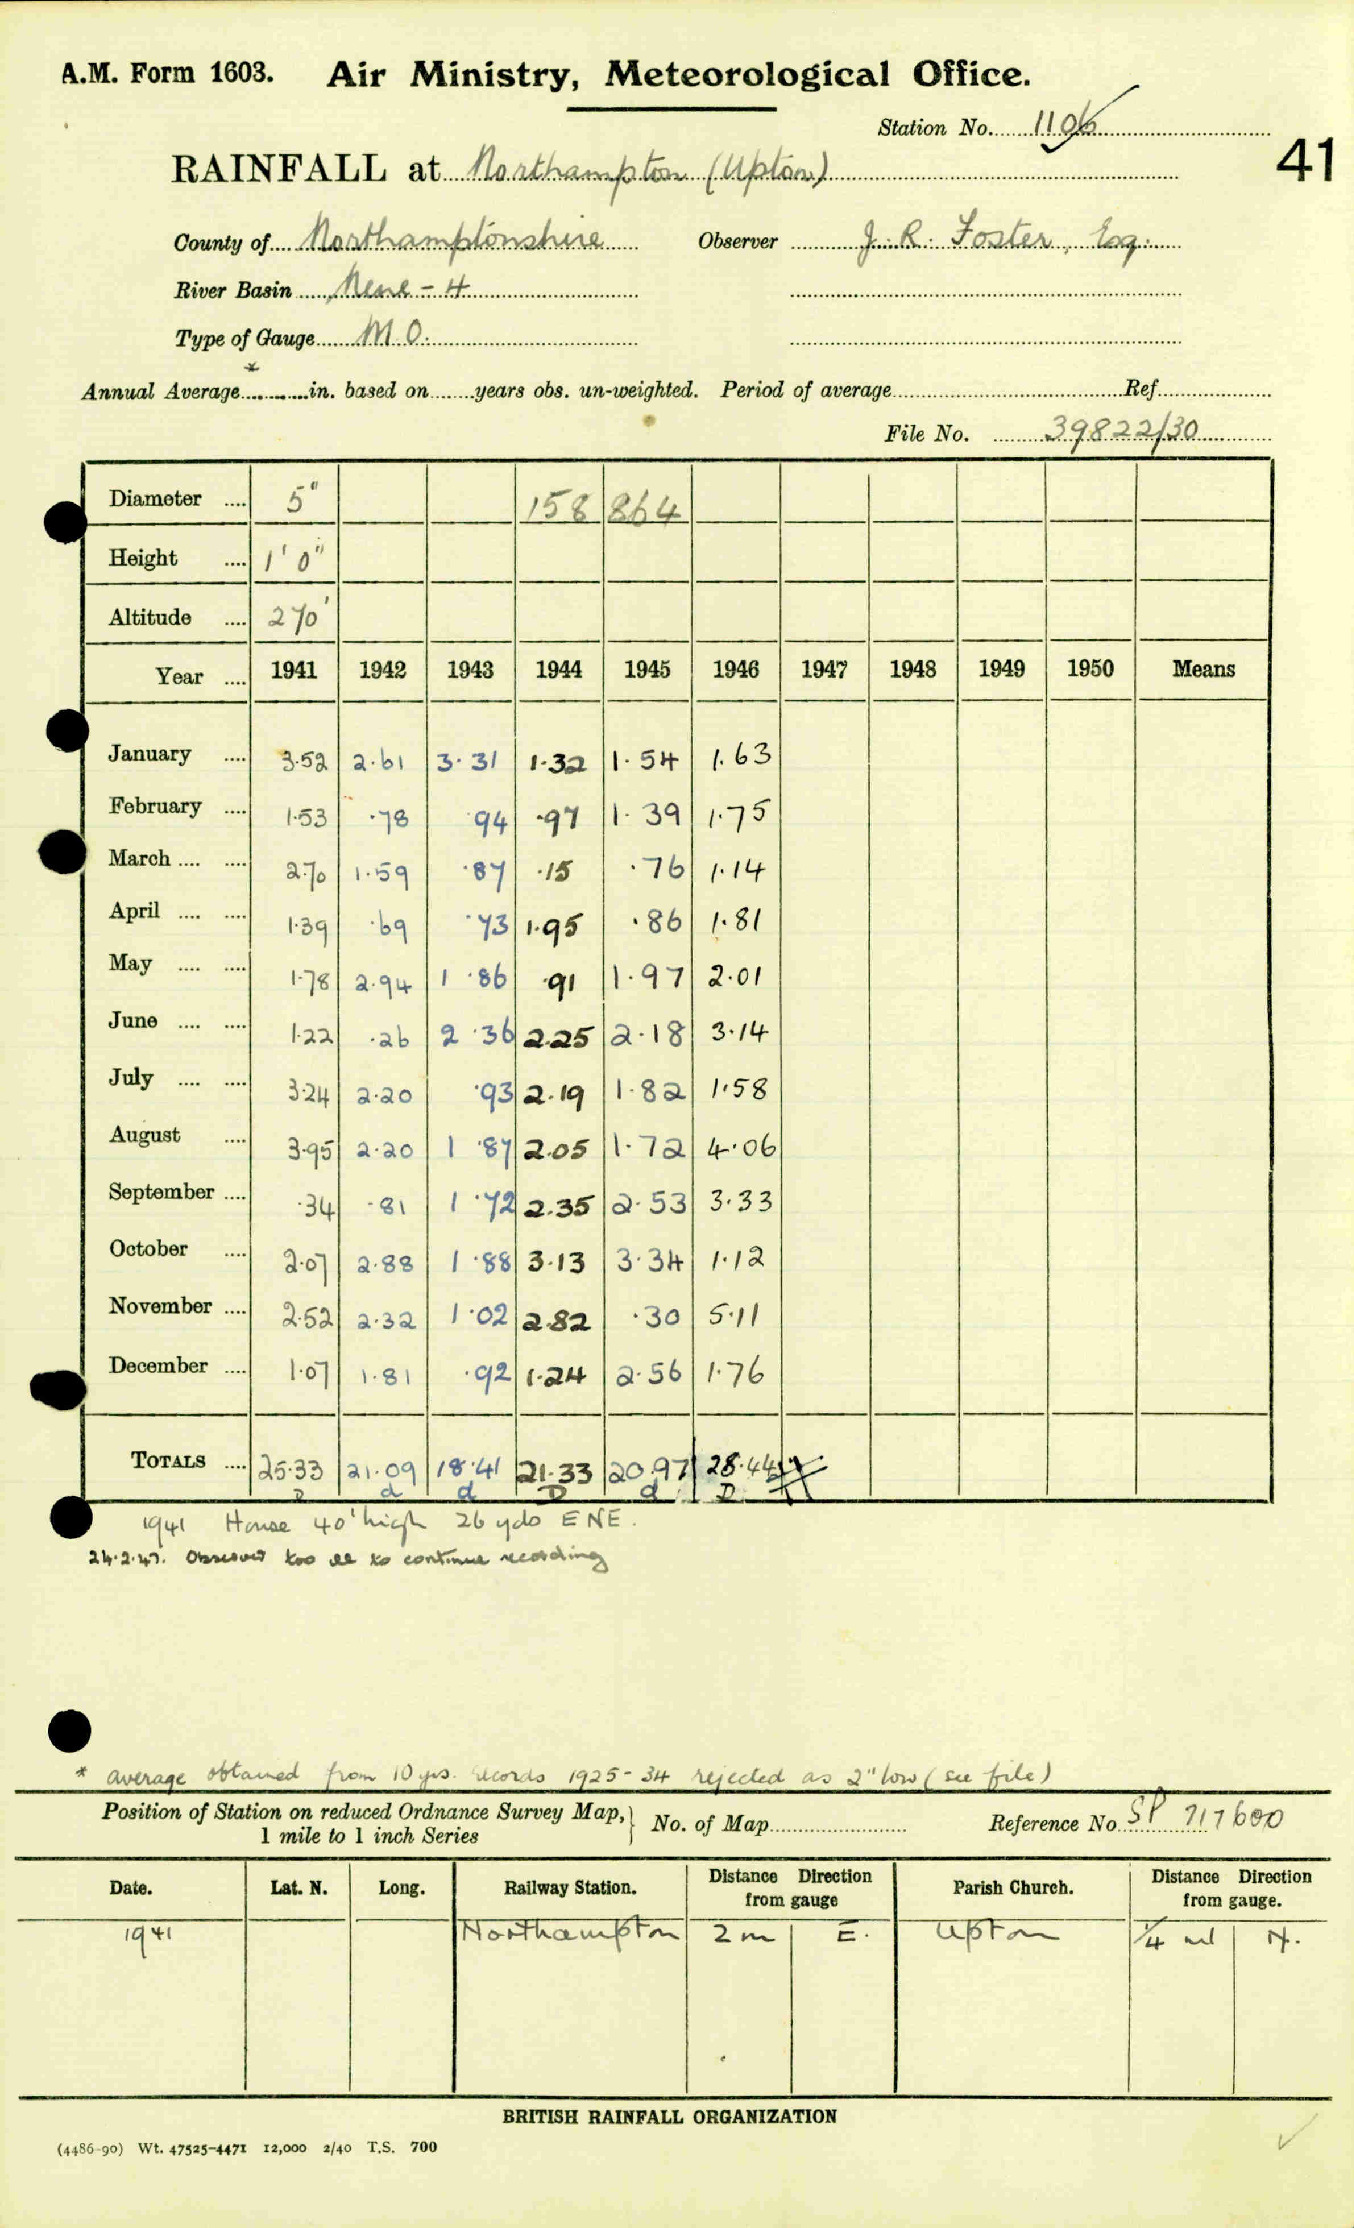 A.M. Form 1603. Air Ministry, Meteorological Office.
Station No. 1106
41
RAINFALL at Northampton (Upton)
County of Northamptonshire Observer J. R. Foster, Esq.
River Basin Nene - 4
Type of Gauge M.O.
Annual Average * in. based on years obs. un-weighted. Period of average Ref
File No. 39822/30
Diameter 5" 158 864
Height 1' 0"
Altitude 270'
Year 1941 1942 1943 1944 1945 1946 1947 1948 1949 1950 Means
January 3.52 2.61 3.31 1.32 1.54 1.63
February 1.53 .78 .94 .97 1.39 1.75
March 2.70 1.59 .87 .15 .76 1.14
April 1.39 .69 .73 1.95 .86 1.81
May 1.78 2.94 1.86 .91 1.97 2.01
June 1.22 .26 2.36 2.25 2.18 3.14
July 3.24 2.20 .93 2.19 1.82 1.58
August 3.95 2.20 1.87 2.05 1.72 4.06
September .34 .81 1.72 2.35 2.53 3.33
October 2.07 2.88 1.88 3.13 3.34 1.12
November 2.52 2.32 1.02 2.82 .30 5.11
December 1.07 1.81 .92 1.24 2.56 1.76
TOTALS 25.33 21.09 18.41 21.33 20.97 28.44
D d d D d D
1941 House 40' high 26 yds ENE.
24.2.47. Observer too ill to continue recording
* average obtained from 10 yrs. records 1925-34 rejected as 2" low (see file)
Position of Station on reduced Ordnance Survey Map, 1 mile to 1 inch Series } No. of Map Reference No SP 717600
Date. Lat. N. Long. Railway Station. Distance Direction from gauge Parish Church. Distance Direction from gauge.
1941 Northampton 2 m E. Upton 1/4 ml N.
BRITISH RAINFALL ORGANIZATION
(4486-90) Wt. 47525-4471 12,000 2/40 T.S. 700